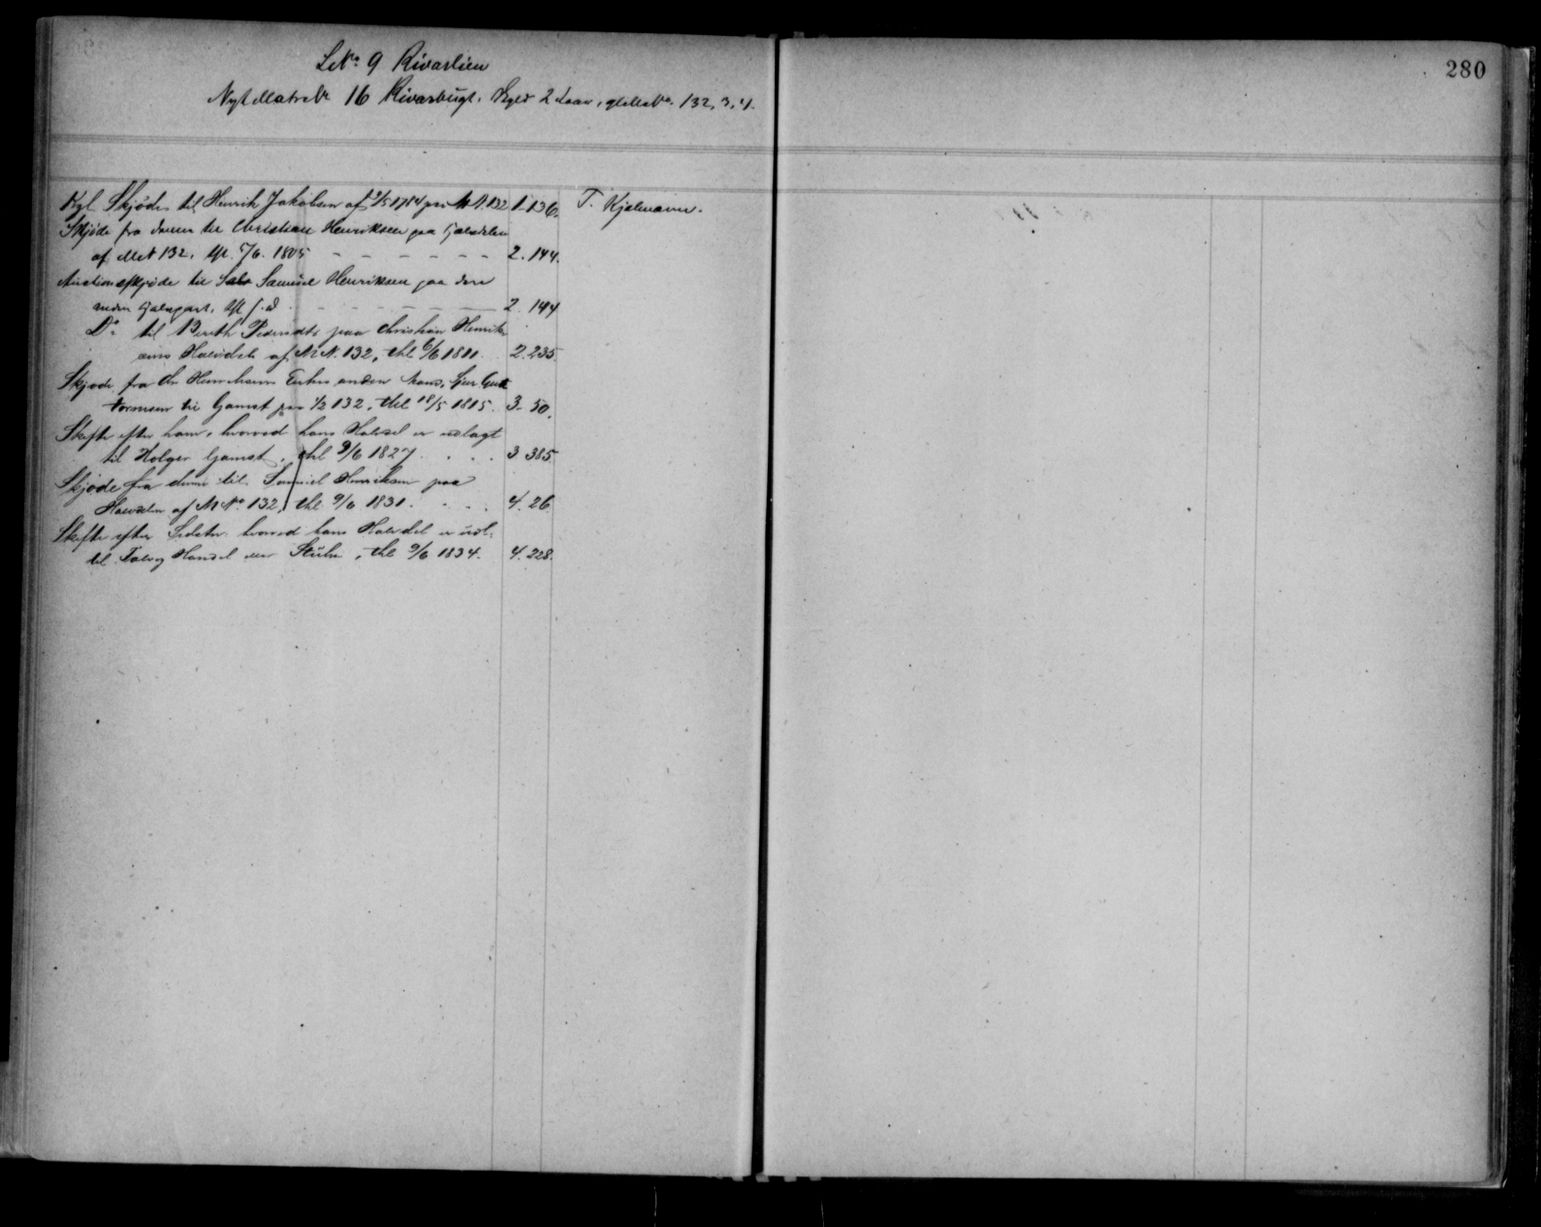 LNº 9 Rivarlien
280
Nyt MatrNr 16 Rivarbugt. Skyld 2 Daler, glMNº. 132, 3, 4.
Kgl. Skjøde til Henrik Jakobsen af 2/5 1784 paa M.N.132 1.136. T. Kjelmann.
Skjøde fra denne til Christian Henriksen paa Halvdelen
af MN 132, thl. 5/6. 1805 - - - - - - 2. 144.
Auctionsskjøde til Samuel Henriksen paa den
anden Halvpart, thl s. d. - - - - - 2. 144
Dº til Berith Pedersdt. paa Christian Henrik-
sens Halvdel af M.N. 132, thl 6/6 1811. 2. 235
Skjøde fra Chr Henriksens Enkes anden Mand, Gut-
tormsen til Gamst paa 1/2 132, thl 18/5 1815. 3. 50.
Skifte efter ham, hvorved hans Halvdel er udlagt
til Holger Gamst, thl 9/6 1827 . . . 3 385.
Skjøde fra denne til Samuel Henriksen paa
Halvdelen af M Nº 132, thl 9/6 1831. . . . 4. 26.
Skifte efter Sidste hvorved hans Halvdel er udl.
til Talvig Handel, thl 9/6 1834. 4. 228.